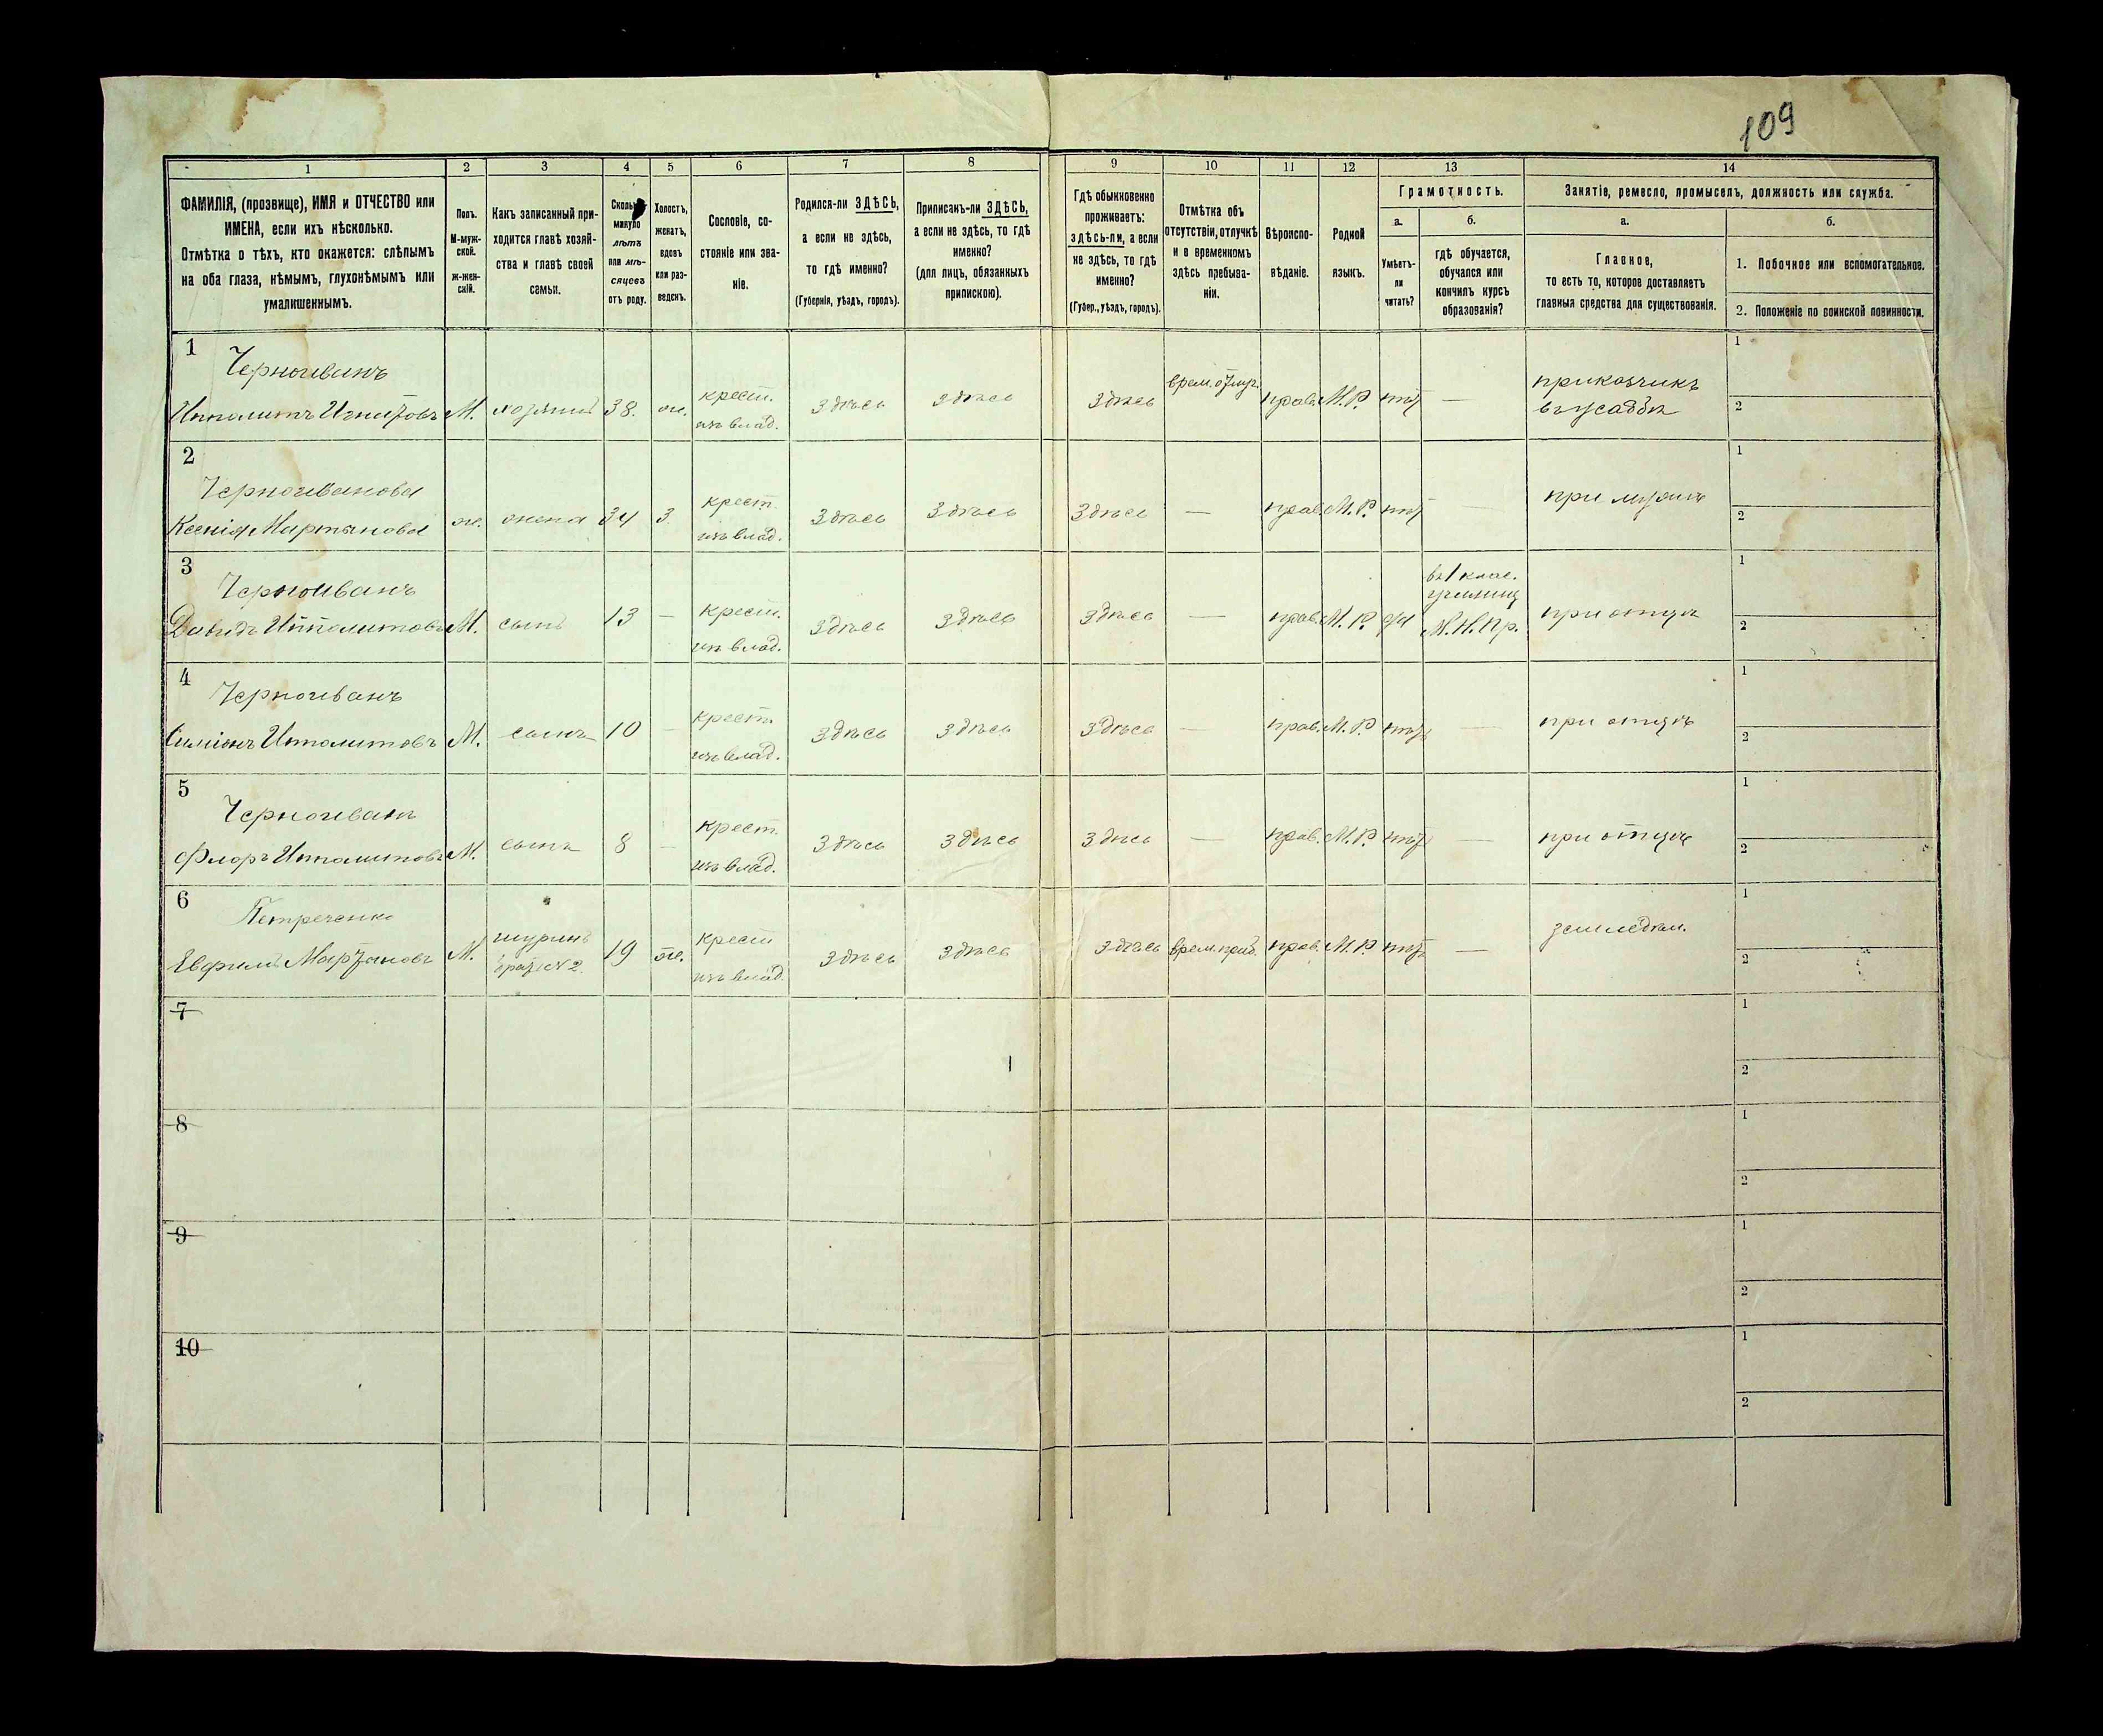 109
1 2 3 4 5 6 7 8 9 10 11 12 13 14
ФАМИЛІЯ, (прозвище), ИМЯ и ОТЧЕСТВО или
ИМЕНА, если ихъ нѣсколько.
Отмѣтка о тѣхъ, кто окажется: слѣпымъ
на оба глаза, нѣмымъ, глухонѣмымъ или
умалишеннымъ.
Полъ.
М-муж-
ской.
Ж-жен-
скій.
Какъ записанный при-
ходится главѣ хозяй-
ства и главѣ своей
семьи.
Сколько
минуло
лѣтъ
или мѣ-
сяцевъ
отъ роду.
Холостъ,
женатъ,
вдовъ
или раз-
веденъ.
Сословіе, со-
стояніе или зва-
ніе.
Родился-ли ЗДѢСЬ,
а если не здѣсь,
то гдѣ именно?
(Губернія, уѣздъ, городъ).
Приписанъ-ли ЗДѢСЬ,
а если не здѣсь, то гдѣ
именно?
(для лицъ, обязанныхъ
припискою).
Гдѣ обыкновенно
проживаетъ:
здѣсь-ли, а если
не здѣсь, то гдѣ
именно?
(Губер., уѣздъ, городъ).
Отмѣтка объ
отсутствіи, отлучкѣ
и о временномъ
здѣсь пребыва-
ніи.
Вѣроиспо-
вѣданіе.
Родной
языкъ.
Грамотность.
а.
Умѣетъ-
ли
читать?
б.
гдѣ обучается,
обучался или
кончилъ курсъ
образованія?
Занятіе, ремесло, промыселъ, должность или служба.
а.
Главное,
то есть то, которое доставляетъ
главныя средства для существованія.
б.
1. Побочное или вспомогательное.
2. Положеніе по воинской повинности.
1
Черноиванъ
Ипполитъ Игнатовъ М. хозяинъ 38. ж. крест. изъ влад. здѣсь здѣсь здѣсь врем. отлуч. прав. М.Р. нѣтъ — приказчикъ
въ усадьбѣ
1
2
2
Черноиванова
Ксенія Мартынова ж. жена 34 з. крест. изъ влад. здѣсь здѣсь здѣсь — прав. М.Р. нѣтъ — при мужѣ
1
2
3
Черноиванъ
Давидъ Ипполитовъ М. сынъ 13 — крест. изъ влад. здѣсь здѣсь здѣсь — прав. М.Р. да
въ 1 клас.
училищ
М.Н.Пр.
при отцѣ
1
2
4
Черноиванъ
Симеонъ Ипполитовъ М. сынъ 10 — крест. изъ влад. здѣсь здѣсь здѣсь — прав. М.Р. нѣтъ — при отцѣ
1
2
5
Черноиванъ
Флоръ Ипполитовъ М. сынъ 8 — крест. изъ влад. здѣсь здѣсь здѣсь — прав. М.Р. нѣтъ — при отцѣ
1
2
6
Петреченко
Евфимъ Мартыновъ М. шуринъ
братъ №2. 19 ж. крест изъ влад. здѣсь здѣсь здѣсь врем. преб. прав. М.Р. нѣтъ — земледѣл.
1
2
7
1
2
8
1
2
9
1
2
10
1
2